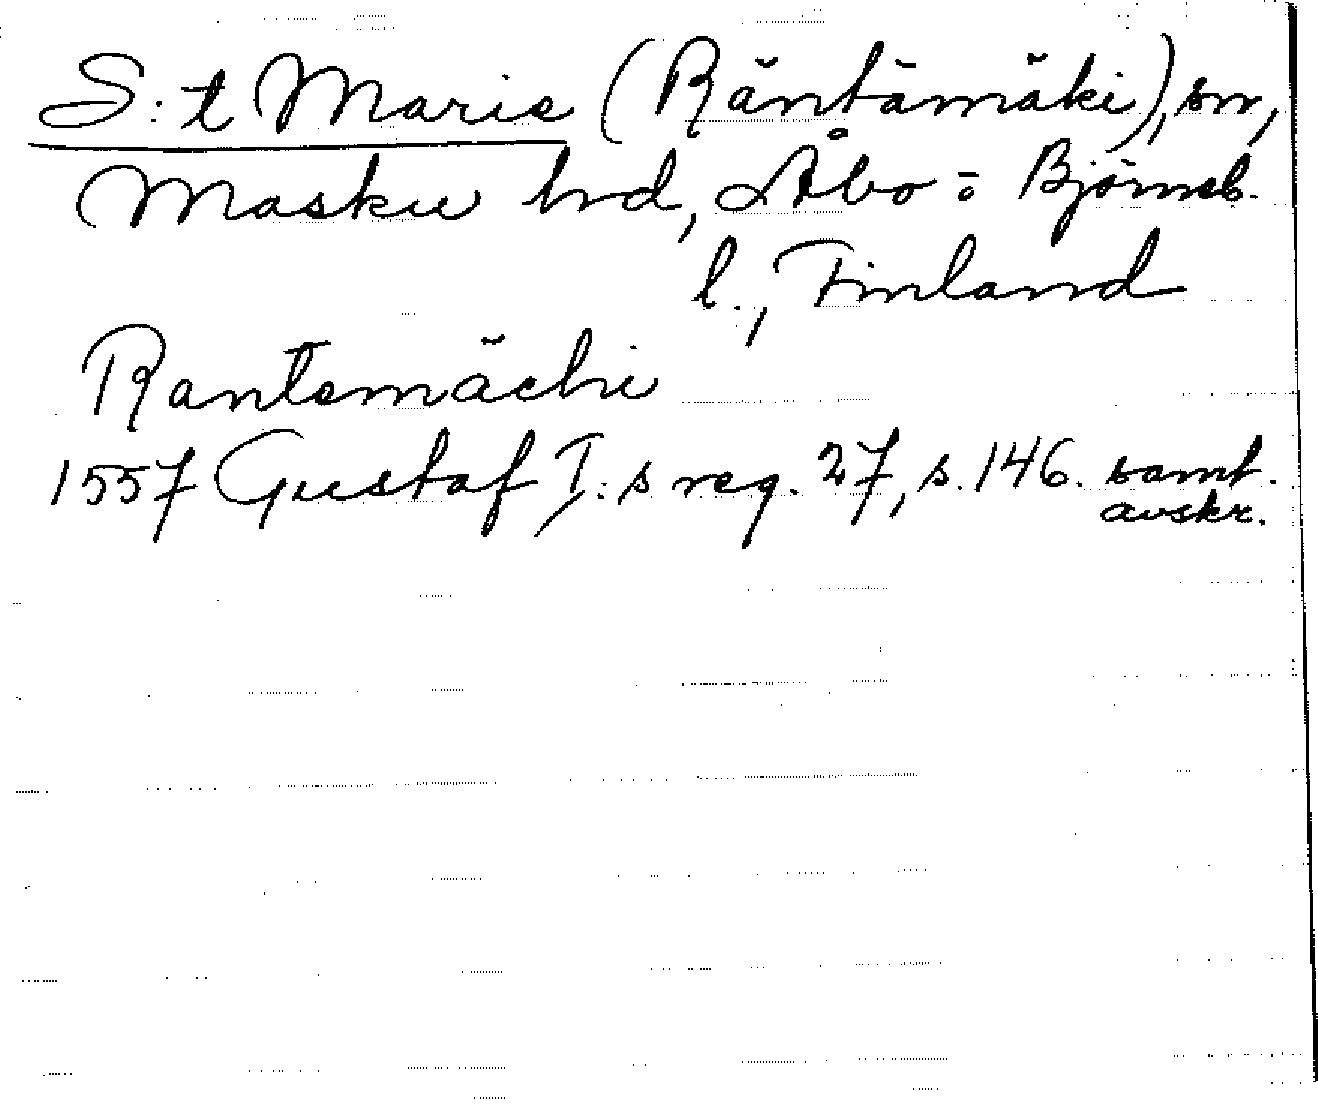 S:t Marie (Räntämäki), sn,
Masku hd, Åbo = Björneb.
l., Finland
Rantemächi
1557 Gustaf I:s reg. 27, s. 146. samt.
avskr.